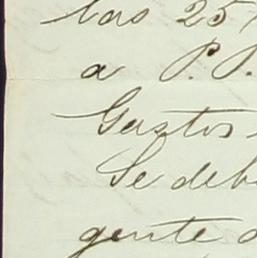 las 25
a P. P.
Gastos
Se deb
gente